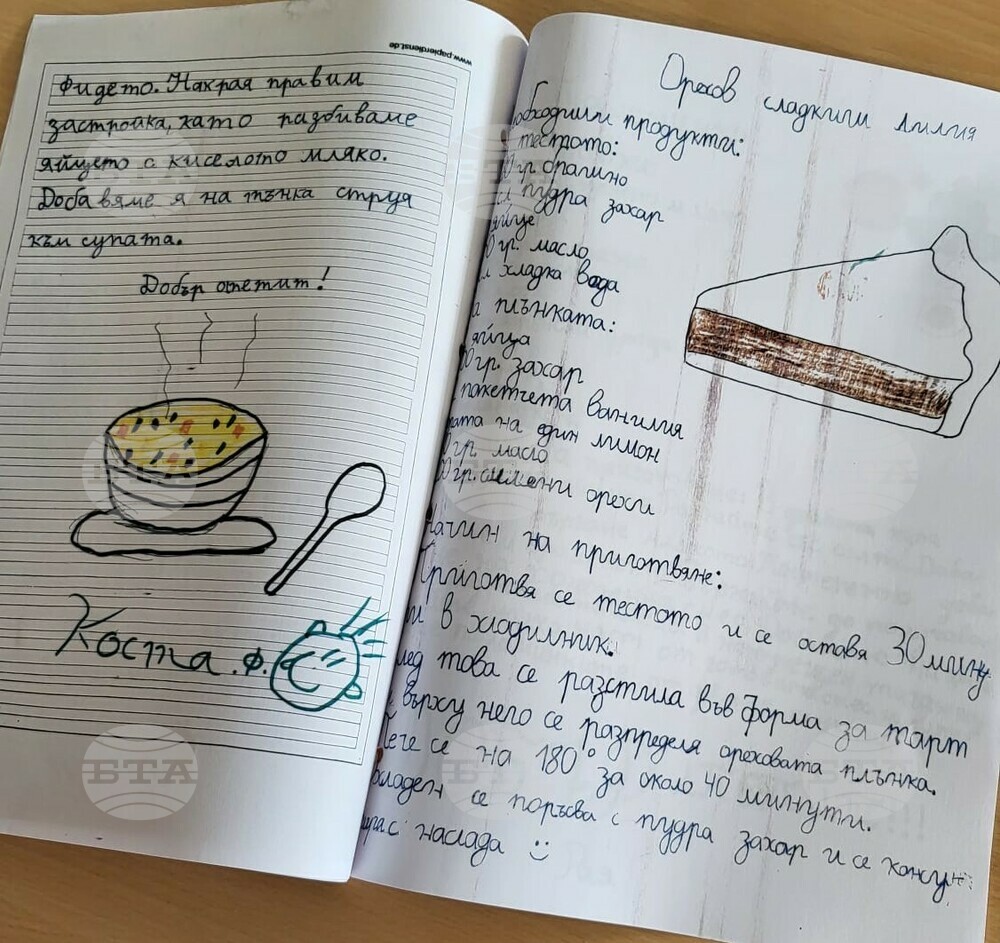 www.papierdienst.de
фидето. Накрая правим
застройка, като разбиваме
яйцето с киселото мляко.
Добавяме я на тънка струя
към супата.
Добър апетит!
Коста .ф.
Орехов сладкиш Лилия
необходими продукти:
тестото:
гр брашно
пудра захар
яйце
гр. масло
хладка вода
плънката:
яйца
гр. захар
пакетчета ванилия
на един лимон
гр масло
гр. смлени орехи
Начин на приготвяне:
Приготвя се тестото и се оставя 30 мину
в хладилник.
това се разстила във форма за тарт
върху него се разпределя ореховата плънка.
Пече се на 180° за около 40 минути.
се поръсва с пудра захар и се
наслада
БТА
БТА
БТА
БТА
БТА
БТА
БТА
БТА
БТА